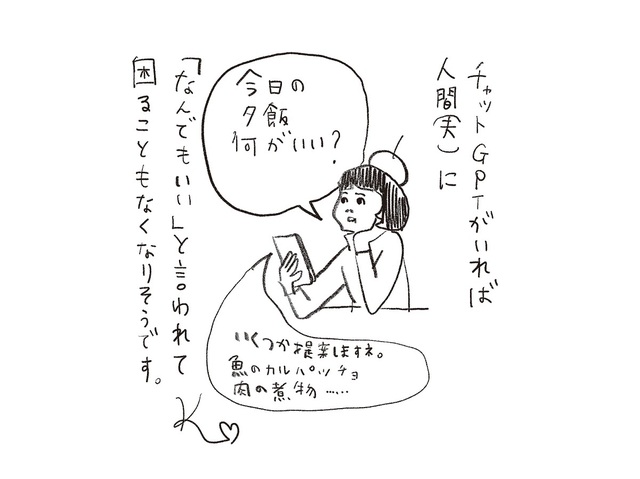 チャットGPTがいれば
人間(夫)に
今日の
夕飯
何がいい？
いくつか提案しますネ。
魚のカルパッチョ
肉の煮物……
「なんでもいい」と言われて
困ることもなくなりそうです。
K